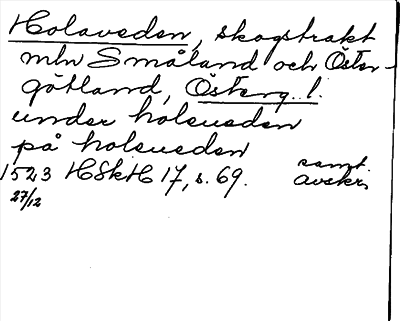 Holaveden, skogstrakt
mln Småland och Öster-
götland, Österg. l.
under holeueden
på holeueden
samt.
1523 HSkH 17, s. 69. avskr.
27/12